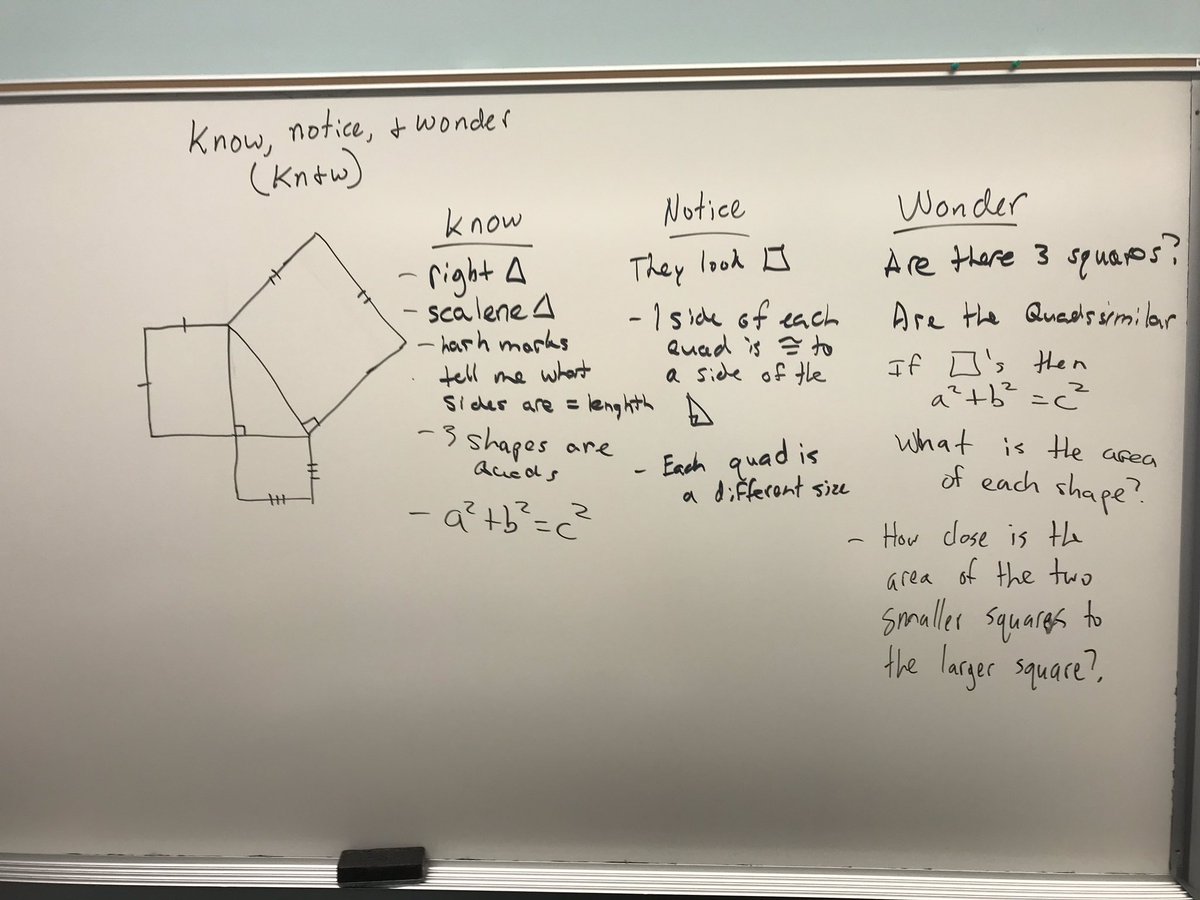 Know, notice, + wonder
(Kn+w)
Know
- right △
- scalene △
- hash marks
tell me what
sides are = lenghth
- 3 shapes are
quads
- a² + b² = c²
Notice
They look □
- 1 side of each
quad is ≅ to
a side of the
- Each quad is
a different size
Wonder
Are there 3 squares?
Are the Quads similar
If □'s then
a² + b² = c²
What is the area
of each shape?
- How close is the
area of the two
smaller squares to
the larger square?